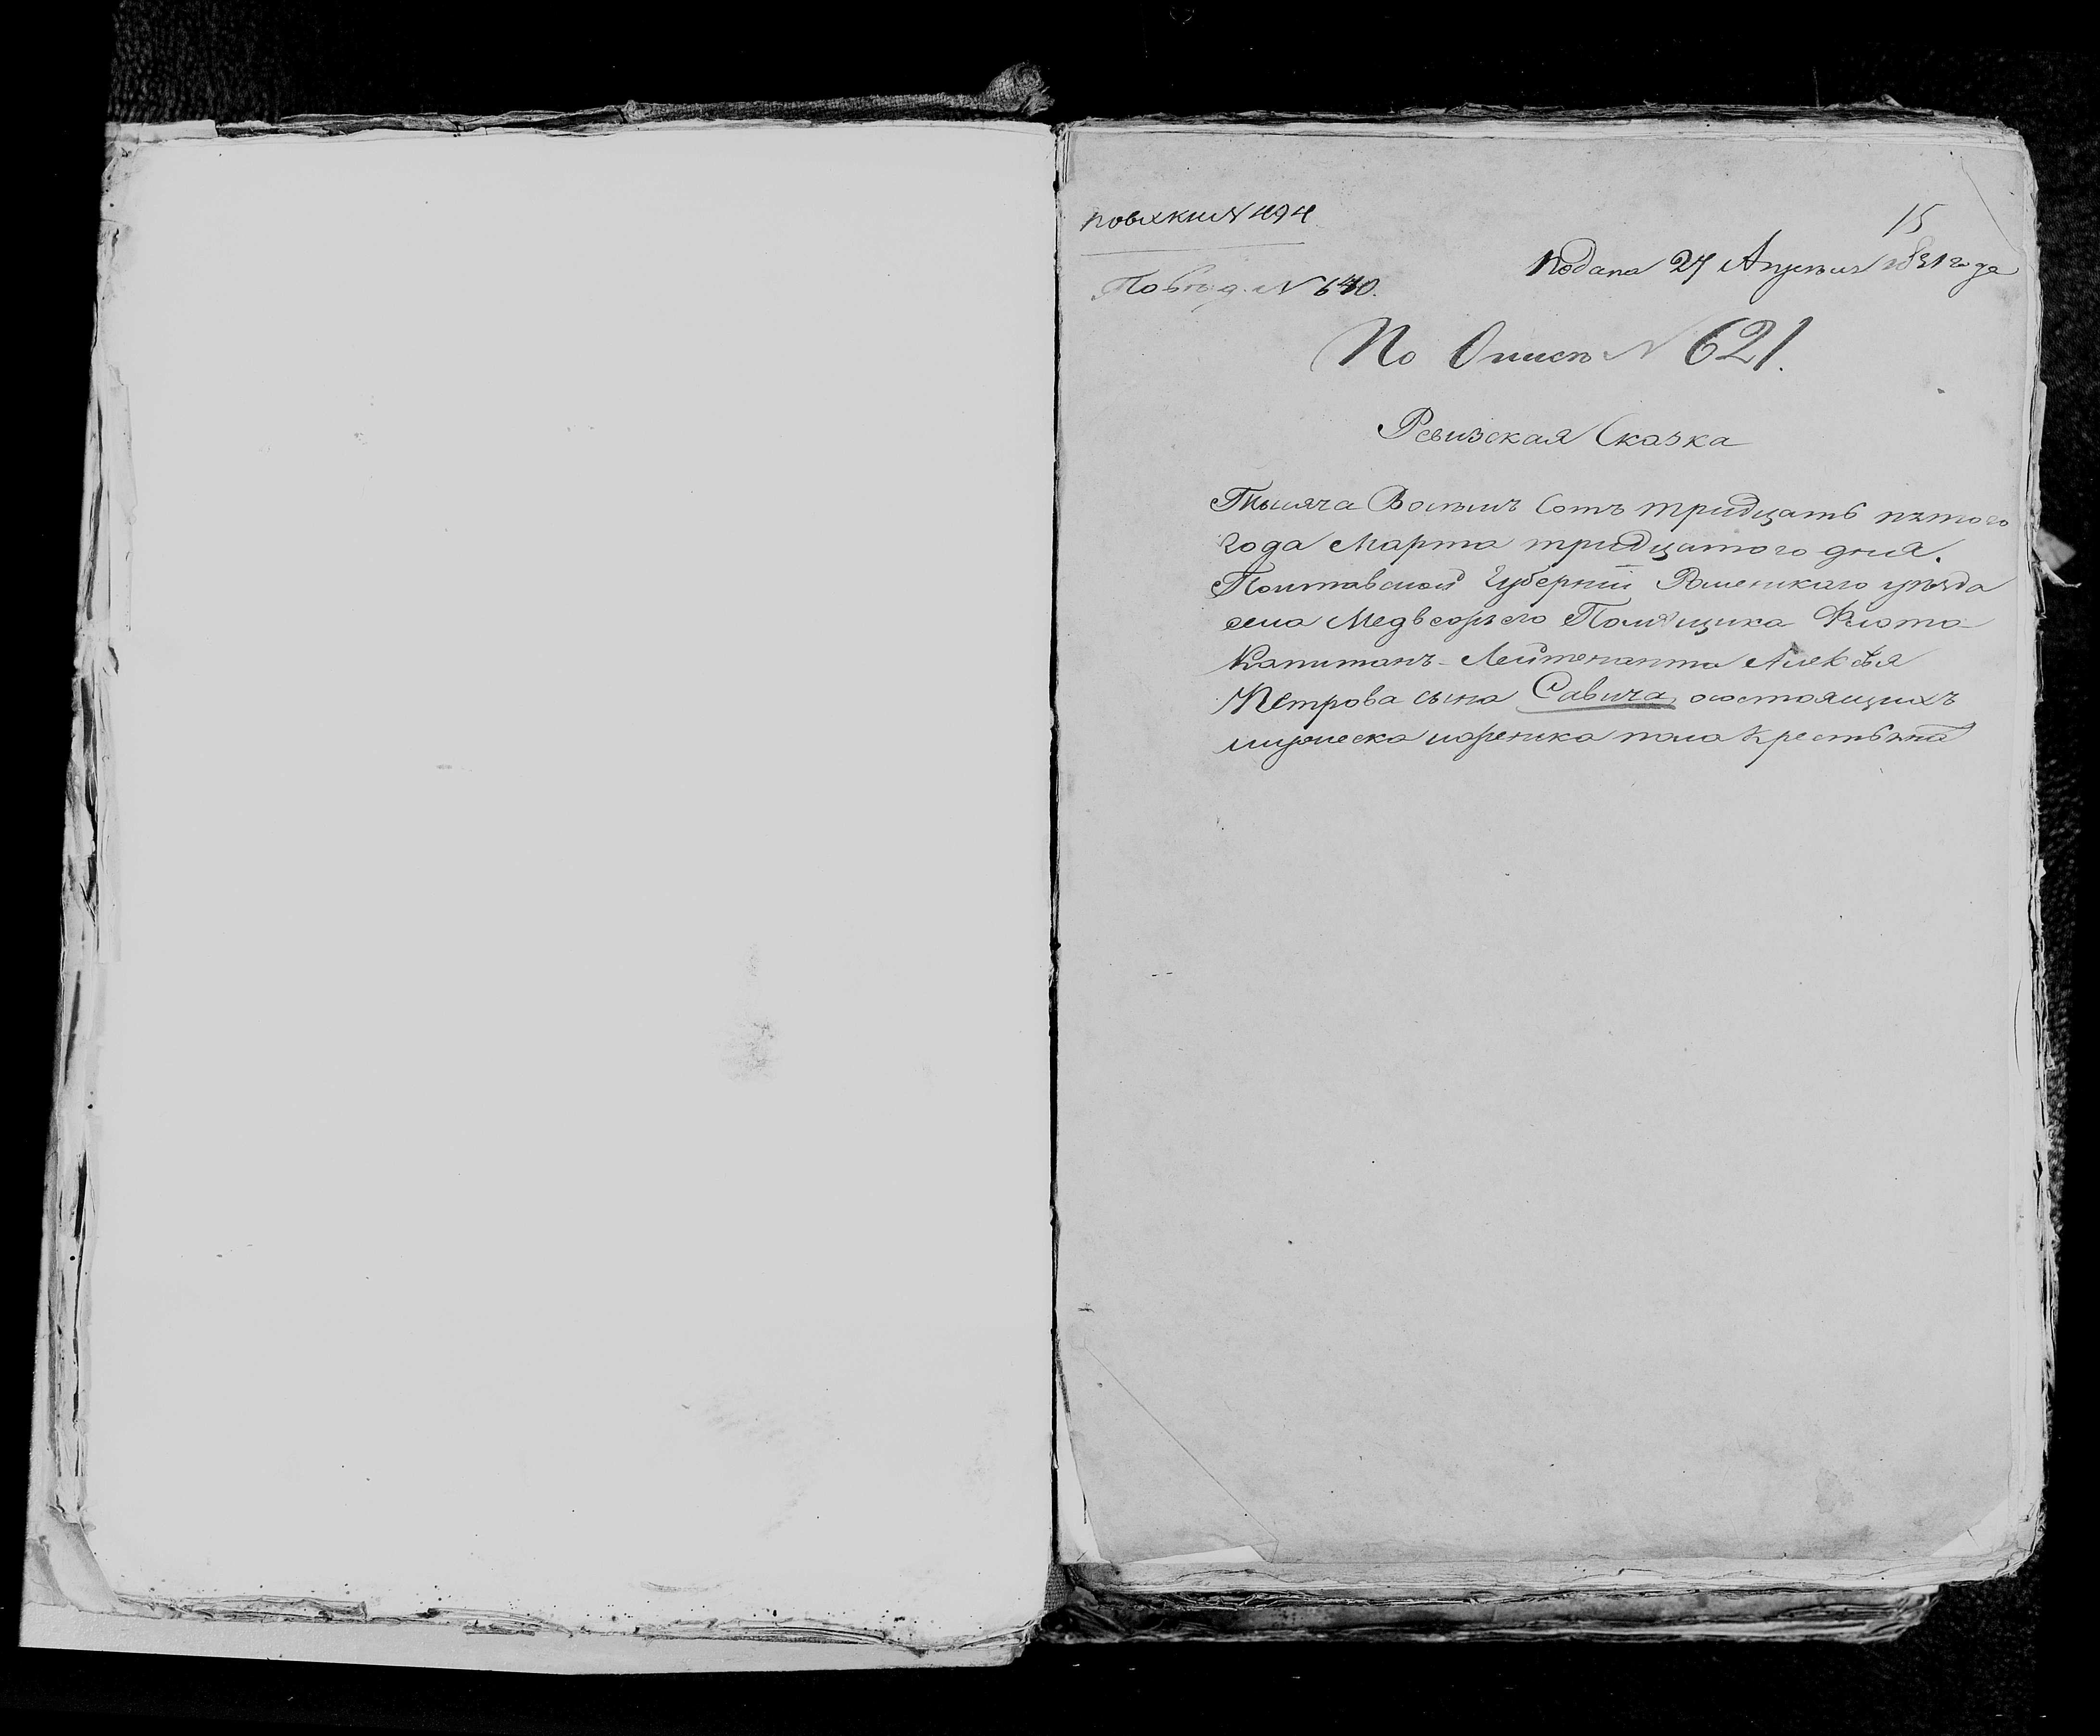 по вх книг № 494
15
Подана 27 Апреля года
По вход. № 640.
По Описи № 621.
Ревизская Сказка
Тысяча Восемь Сотъ тридцать пятого
года Марта тридцатого дня.
Полтавской Губернiи Роменскаго уезда
села Медвежьего Помещика Флота
Капитанъ-Лейтенанта Алексея
Петрова сына Савича, состоящихъ
мужеска и женска пола Крестьянъ